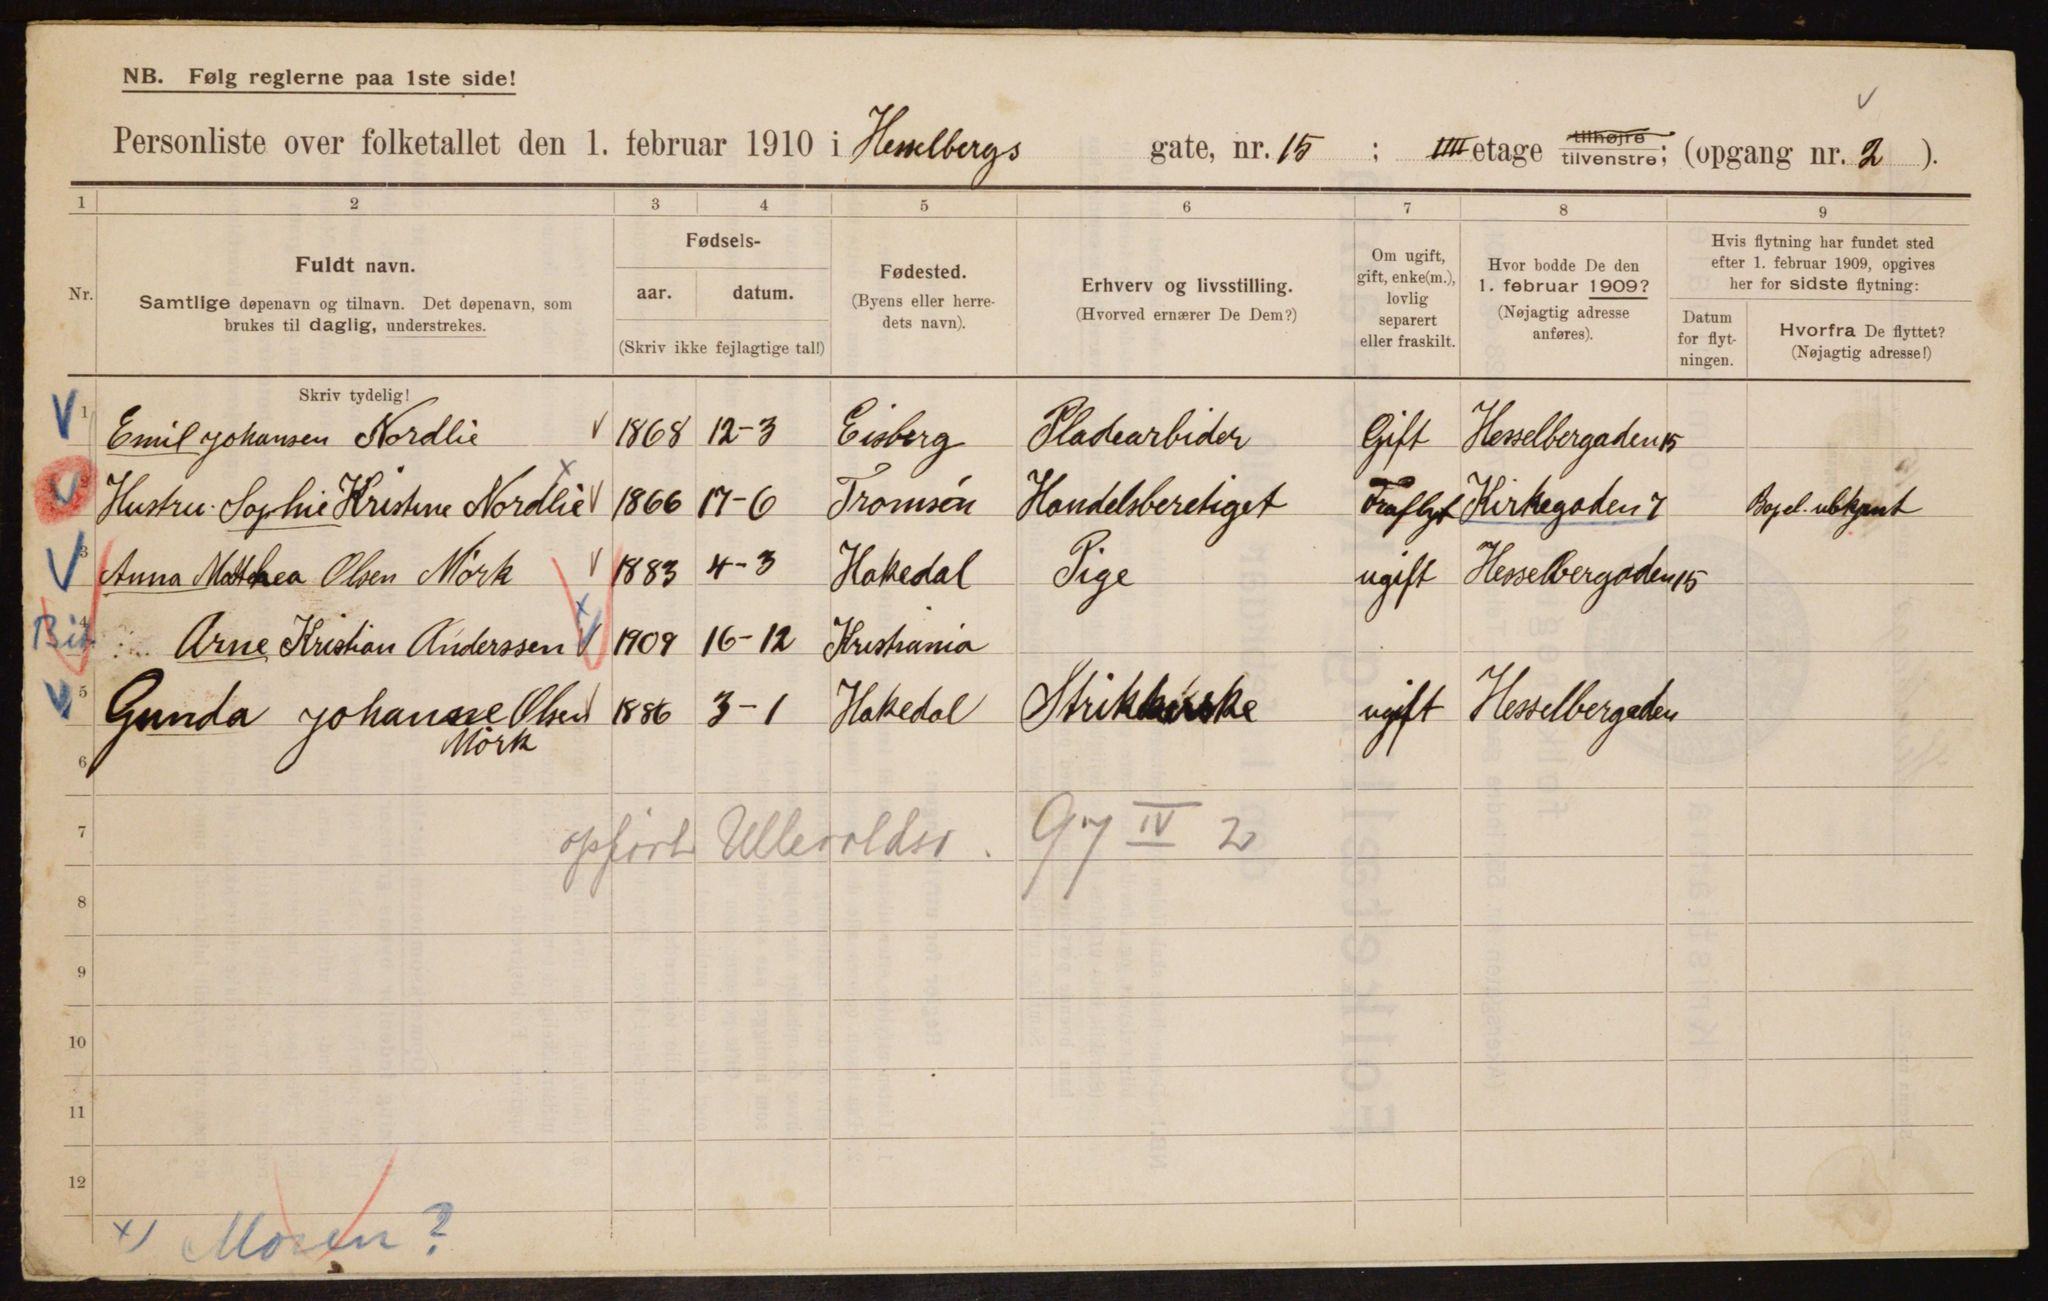 NB. Følg reglerne paa 1ste side!
Personliste over folketallet den 1. februar 1910 i Hesselbergs gate, nr. 15 ; IIII etage tilhøjre tilvenstre; (opgang nr. 2 ).
1 2 3 4 5 6 7 8 9
Nr.
Fuldt navn.
Samtlige døpenavn og tilnavn. Det døpenavn, som
brukes til daglig, understrekes.
Fødsels-
aar. datum.
(Skriv ikke fejlagtige tal!)
Fødested.
(Byens eller herre-
dets navn).
Erhverv og livsstilling.
(Hvorved ernærer De Dem?)
Om ugift,
gift, enke(m.),
lovlig
separert
eller fraskilt.
Hvor bodde De den
1. februar 1909?
(Nøjagtig adresse
anføres).
Hvis flytning har fundet sted
efter 1. februar 1909, opgives
her for sidste flytning:
Datum
for flyt-
ningen.
Hvorfra De flyttet?
(Nøjagtig adresse!)
Skriv tydelig!
1 Emil Johansen Nordlie 1868 12-3 Eisberg Pladearbider Gift Hesselbergaden 15
2 Hustru. Sophie Kristine Nordlie 1866 17-6 Tromsøn Handelsberetiget Fraflyt Kirkegaden 7
3 Anna Matthea Olsen Mörk 1883 4-3 Hakedal Pige ugift Hesselbergaden 15
4 Arne Kristian Anderssen 1909 16-12 Kristiania
5 Gunda Johanne Olsen 1886 3-1 Hakedal ugift Hesselbergaden
Mörk
6
7 opført 97 IV 2
8
9
10
11
12
x) Moren?